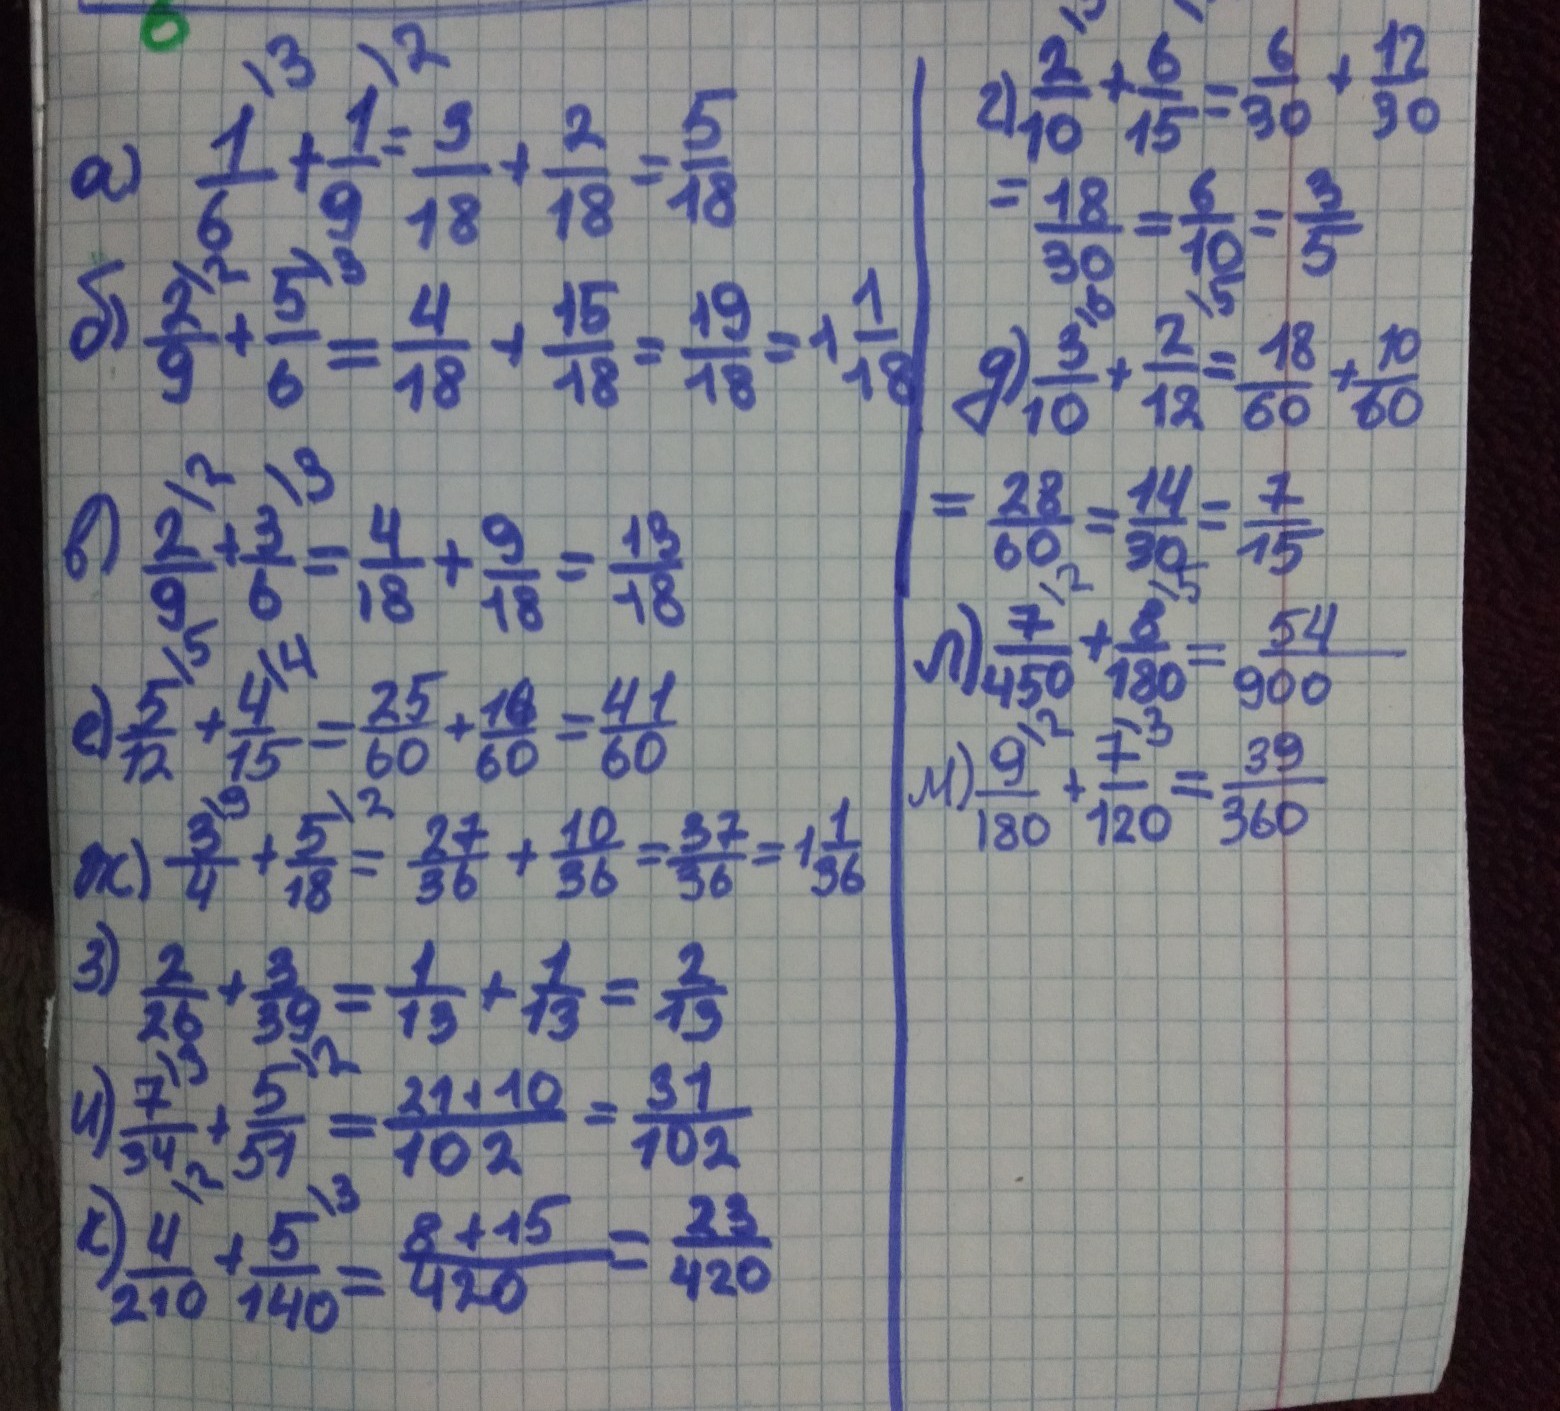 6
а) 1\3/6 + 1\2/9 = 3/18 + 2/18 = 5/18
б) 2\2/9 + 5\3/6 = 4/18 + 15/18 = 19/18 = 1 1/18
в) 2\2/9 + 3\3/6 = 4/18 + 9/18 = 13/18
е) 5\5/12 + 4\4/15 = 25/60 + 16/60 = 41/60
ж) 3\9/4 + 5\2/18 = 27/36 + 10/36 = 37/36 = 1 1/36
з) 2/26 + 3/39 = 1/13 + 1/13 = 2/13
и) 7\3/34 + 5\2/51 = 21+10/102 = 31/102
к) 4\2/210 + 5\3/140 = 8+15/420 = 23/420
г) 2\3/10 + 6/15 = 6/30 + 12/30
= 18/30 = 6/10 = 3/5
д) 3\6/10 + 2\5/12 = 18/60 + 10/60
= 28/60 = 14/30 = 7/15
л) 7\2/450 + 8\5/180 = 54/900
м) 9\2/180 + 7\3/120 = 39/360